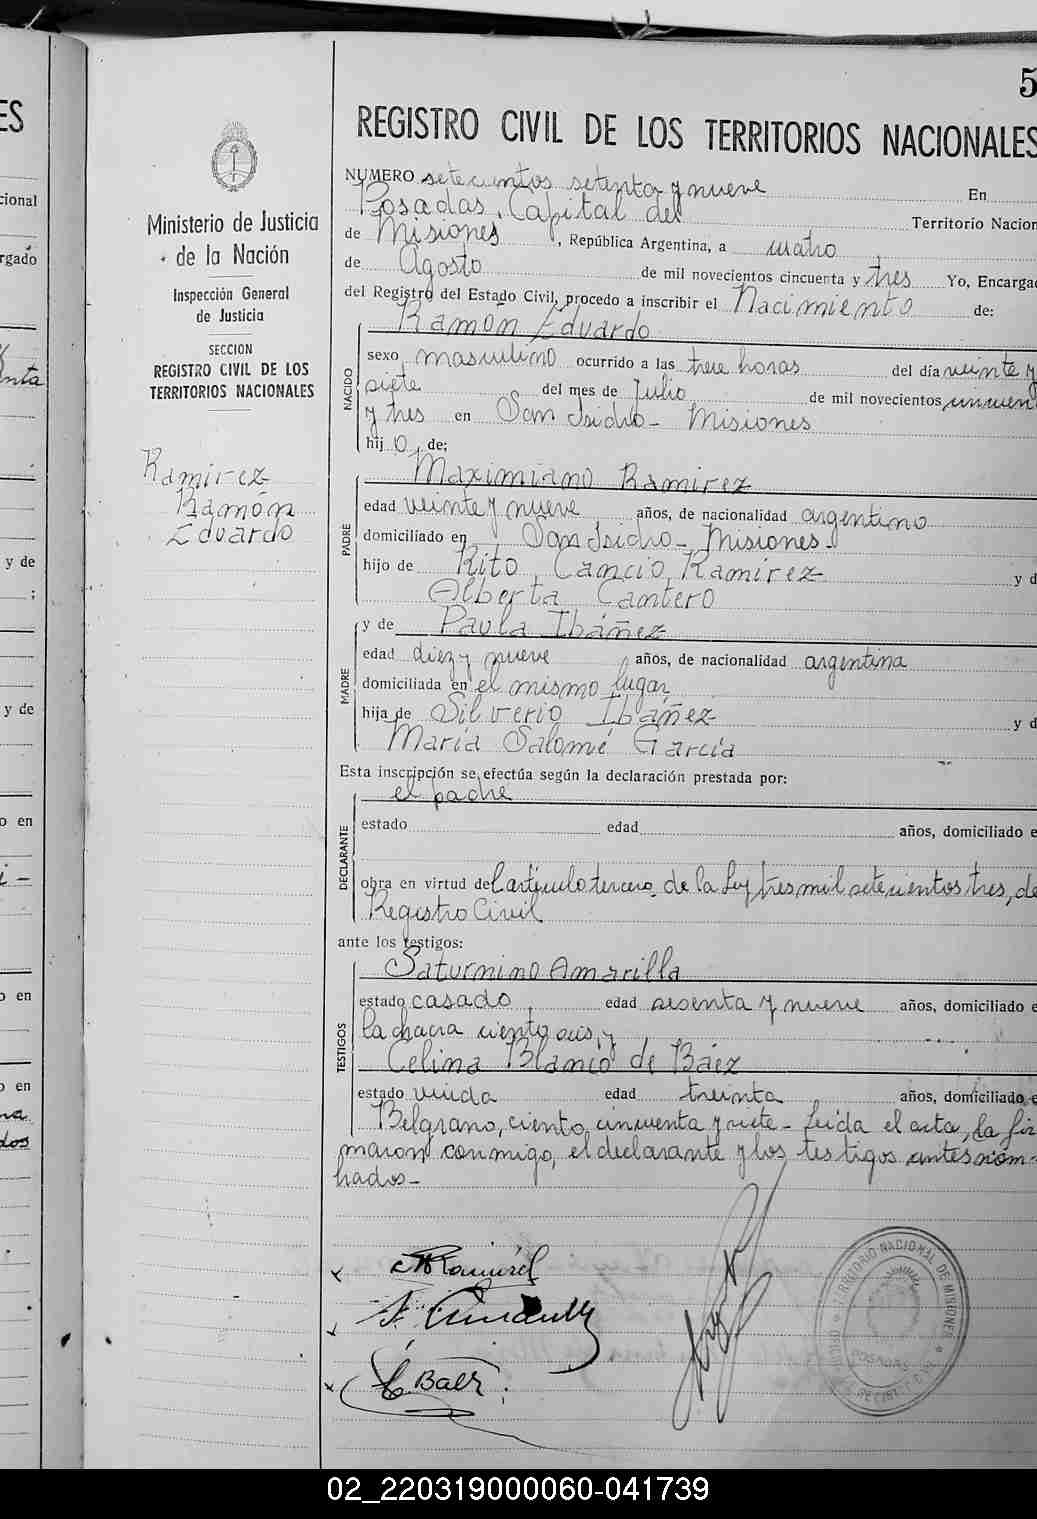 ES
cional
rgado
nta
y de
;
y de
o en
i -
o en
o en
na
dos
Ministerio de Justicia
de la Nación
Inspección General
de Justicia
SECCION
REGISTRO CIVIL DE LOS
TERRITORIOS NACIONALES
Ramírez
Ramón
Eduardo
5
REGISTRO CIVIL DE LOS TERRITORIOS NACIONALES
NUMERO setecientos setenta y nueve En
Posadas, Capital del Territorio Nacion
de Misiones, República Argentina, a cuatro
de Agosto de mil novecientos cincuenta y tres Yo, Encarga
del Registro del Estado Civil, procedo a inscribir el Nacimiento de:
Ramón Eduardo
NACIDO
sexo masculino ocurrido a las trece horas del día veinte y
siete del mes de Julio de mil novecientos cincuen
y tres en San Isidro - Misiones
hijo, de:
Maximiano Ramirez
PADRE
edad veinte y nueve años, de nacionalidad argentino
domiciliado en San Isidro - Misiones -
hijo de Rito Cancio Ramírez y d
Alberta Cantero
y de Paula Ibáñez
MADRE
edad diez y nueve años, de nacionalidad argentina
domiciliada en el mismo lugar
hija de Silverio Ibáñez y d
María Salomé García
Esta inscripción se efectúa según la declaración prestada por:
el padre
DECLARANTE
estado edad años, domiciliado e
obra en virtud del artículo tercero, de la Ley tres mil setecientos tres, de
Registro Civil
ante los testigos:
Saturnino Amarilla
TESTIGOS
estado casado edad sesenta y nueve años, domiciliado e
la chacra ciento seis, y
Celina Blanco de Báez
estado viuda edad treinta años, domiciliado e
Belgrano, ciento cincuenta y siete - Leída el acta, la fir
maron conmigo, el declarante y los testigos antes nom-
brados -
M Ramírez
S. Amarilla
C. Baez
TERRITORIO NACIONAL DE MISIONES
POSADAS
02_220319000060-041739